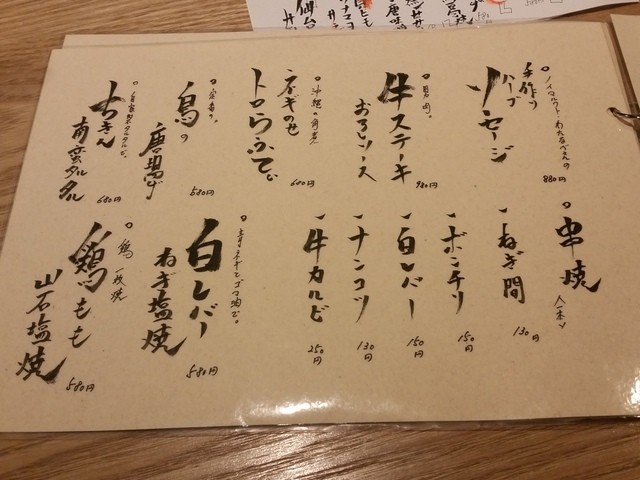 手作り
ハーブ
ソーセージ
880円
男肉。
牛ステーキ
おろしソース
980円
沖縄の角煮
ネギのせ
トロらふてぃ
680円
定番の。
鳥の
唐揚げ
580円
自家製タルタルで。
ちきん
南蛮タルタル
680円
串焼
(一本)
ねぎ間
130円
ボンチリ
150円
白レバー
150円
ナンコツ
130円
牛カルビ
250円
ゴマ油で。
白レバー
ねぎ塩焼
580円
鶏一枚焼
鶏もも
山石塩焼
580円